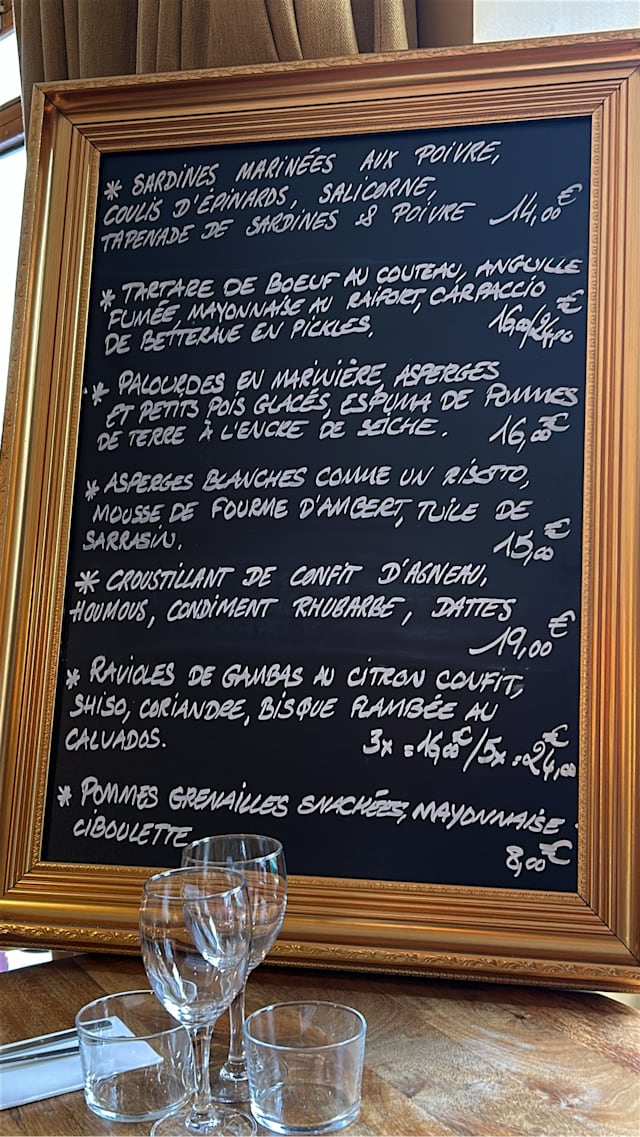 * SARDINES MARINÉES AUX POIVRE,
COULIS D'ÉPINARDS, SALICORNE,
TAPENADE DE SARDINES & POIVRE 14,00€
* TARTARE DE BOEUF AU COUTEAU, ANGUILLE
FUMÉE, MAYONNAISE AU RAIFORT, CARPACCIO
DE BETTERAVE EN PICKLES. 16,00/24,00€
* PALOURDES EN MARINIÈRE, ASPERGES
ET PETITS POIS GLACÉS, ESPUMA DE POMMES
DE TERRE À L'ENCRE DE SEICHE. 16,00€
* ASPERGES BLANCHES COMME UN RISOTO,
MOUSSE DE FOURME D'AMBERT, TUILE DE
SARRASIN. 15,00€
* CROUSTILLANT DE CONFIT D'AGNEAU,
HOUMOUS, CONDIMENT RHUBARBE, DATTES
19,00€
* RAVIOLES DE GAMBAS AU CITRON CONFIT,
SHISO, CORIANDRE, BISQUE FLAMBÉE AU
CALVADOS. 3x = 16,00€/5x = 24,00€
* POMMES GRENAILLES SNACKÉES, MAYONNAISE
CIBOULETTE
8,00€